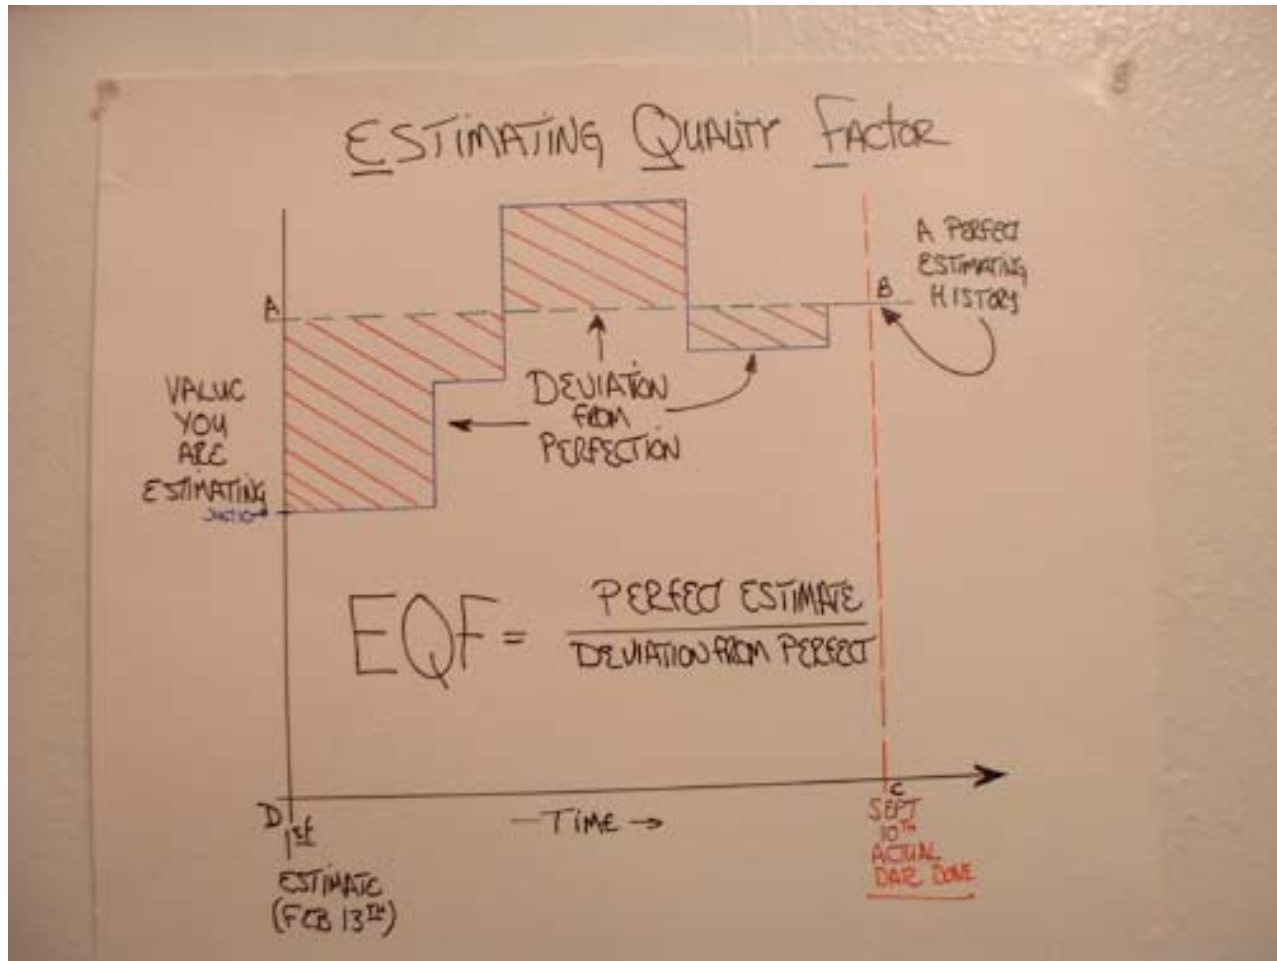 ESTIMATING QUALITY FACTOR
A PERFECT
ESTIMATING
HISTORY
A
B
VALUE
YOU
ARE
ESTIMATING
DEVIATION
FROM
PERFECTION
EQF = PERFECT ESTIMATE
DEVIATION FROM PERFECT
D
C
1st
— TIME →
ESTIMATE
(FEB 13TH)
SEPT
10TH
ACTUAL
DONE